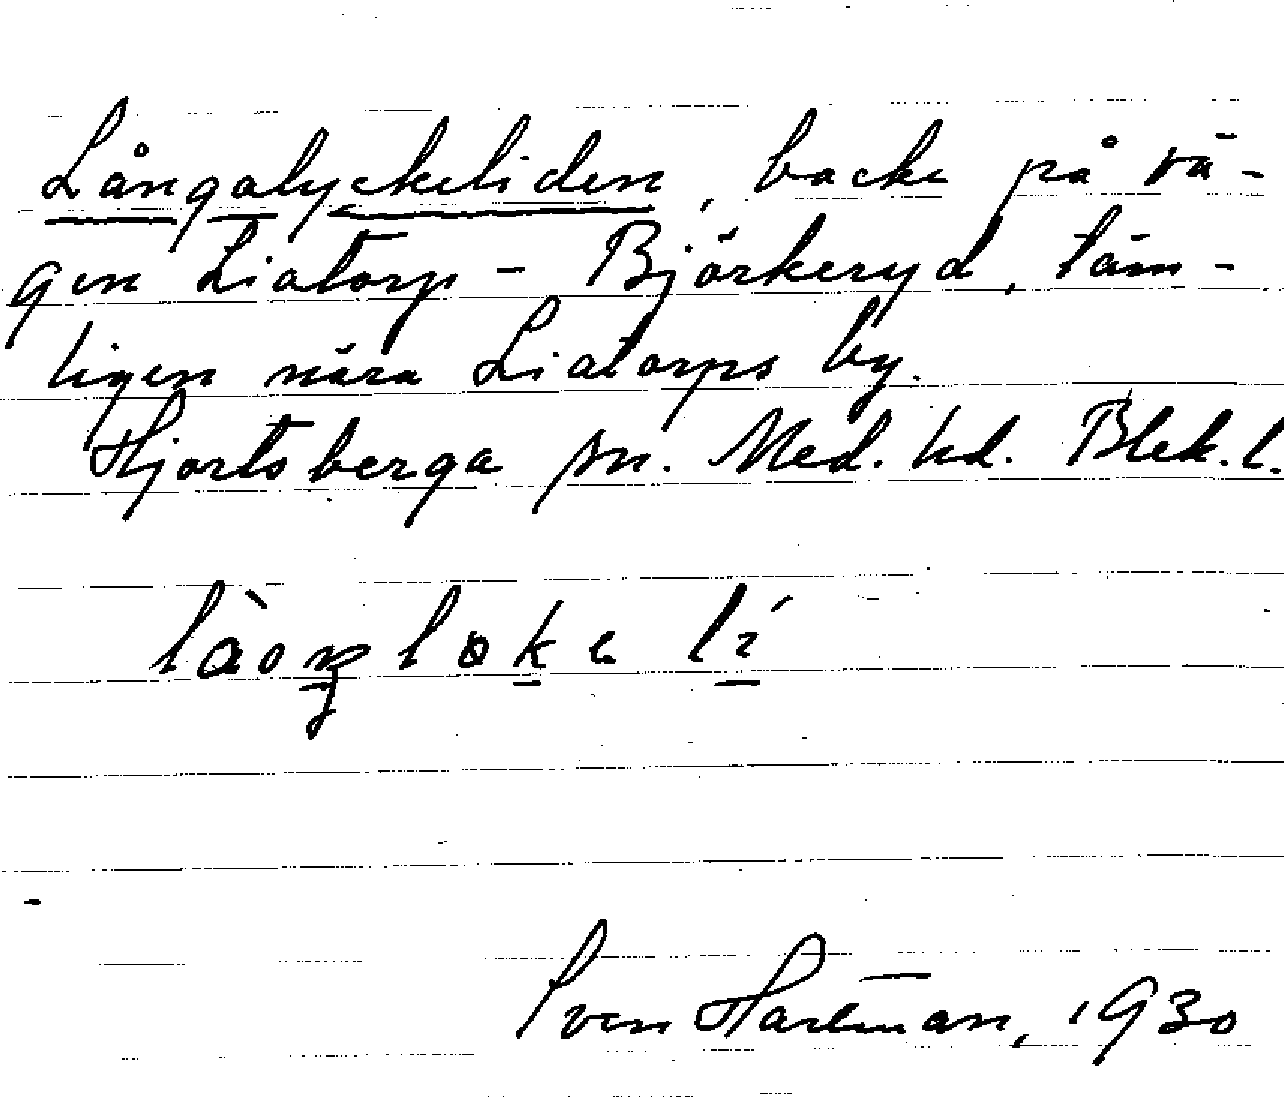 Långalyckeliden, backe på vä-
gen Liatorp - Björkeryd, täm-
ligen nära Liatorps by.
Hjortsberga sn. Med. hd. Blek. l.
Sven Hartman, 1930